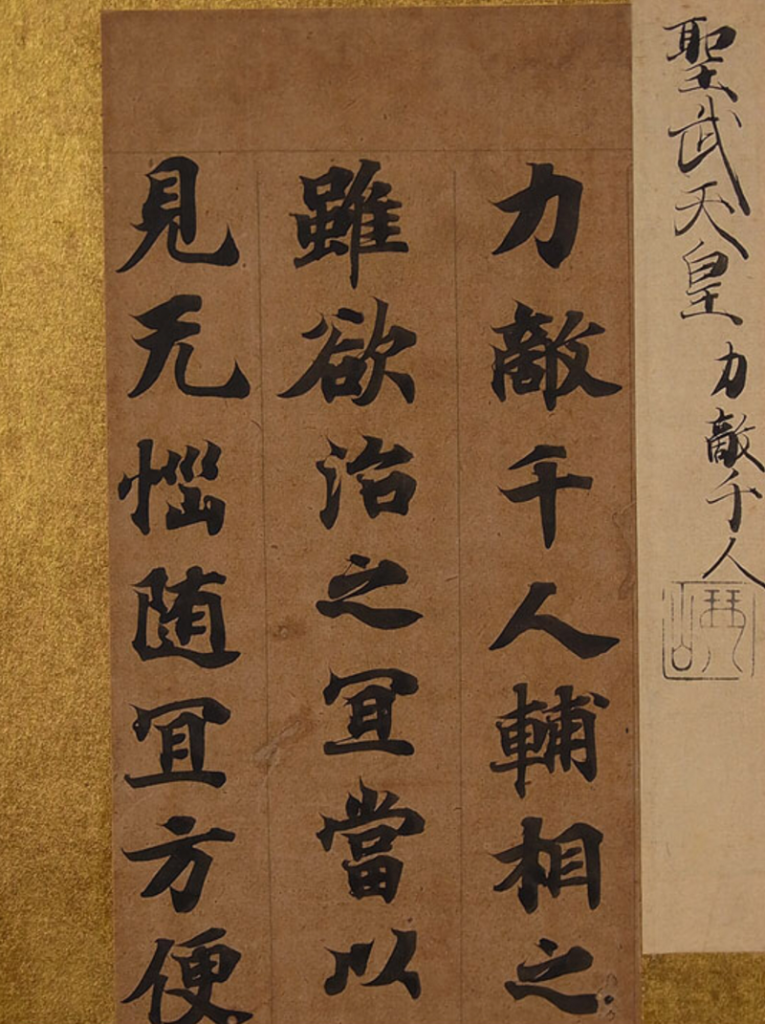 聖武天皇 力敵千人
力敵千人輔相之
雖欲治之冝當以
見无惱随冝方便